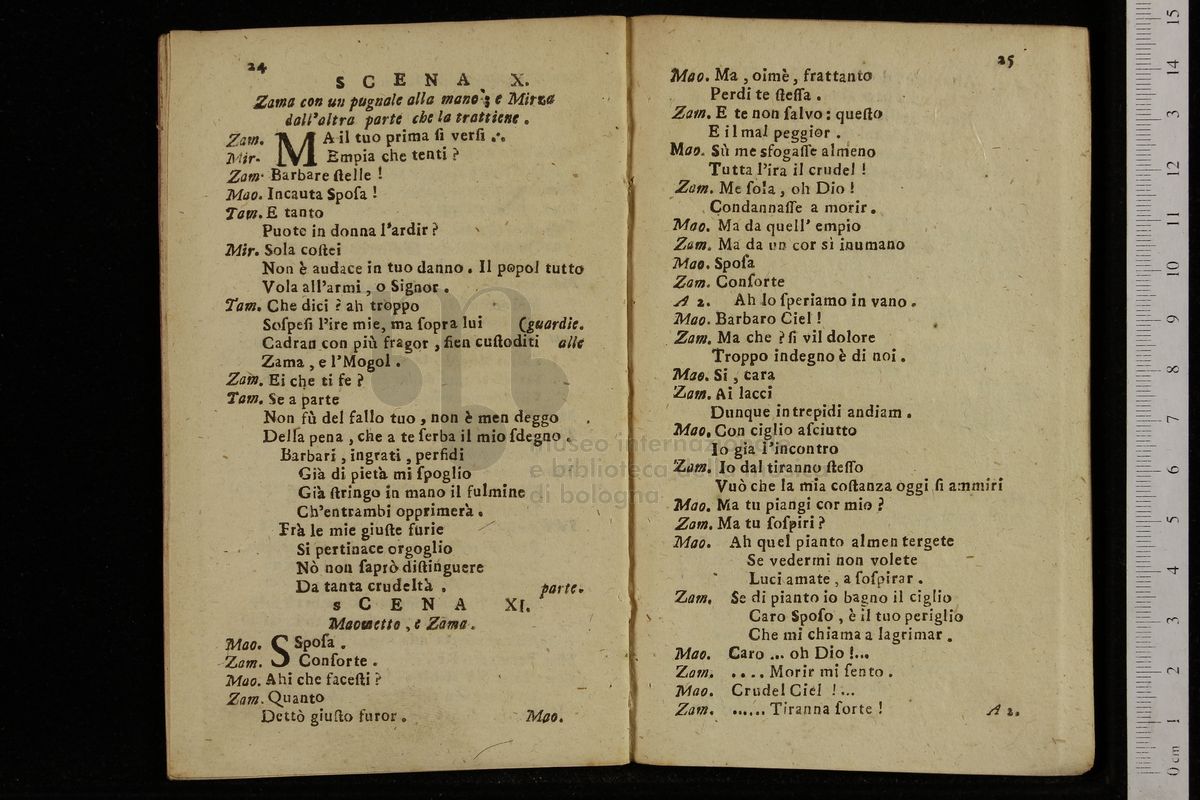 24
SCENA X.
Zama con un pugnale alla mano; e Mirza
dall'altra parte che la trattiene.
Zam. MA il tuo prima ſi verſi ...
Mir. Empia che tenti?
Zam. Barbare ſtelle!
Mao. Incauta Spoſa!
Tam. E tanto
Puote in donna l'ardir?
Mir. Sola coſtei
Non è audace in tuo danno. Il popol tutto
Vola all'armi, o Signor.
Tam. Che dici? ah troppo
Soſpeſi l'ire mie, ma ſopra lui (guardie.
Cadran con più fragor, ſien cuſtoditi alle
Zama, e l'Mogol.
Zam. Ei che ti fe?
Tam. Se a parte
Non fù del fallo tuo, non è men deggo
Della pena, che a te ſerba il mio ſdegno.
Barbari, ingrati, perfidi
Già di pietà mi ſpoglio
Già ſtringo in mano il fulmine
Ch'entrambi opprimerà.
Frà le mie giuſte furie
Si pertinace orgoglio
Nò non ſaprò diſtinguere
Da tanta crudeltà. parte.
SCENA XI.
Maometto, e Zama.
Mao. SSpoſa.
Zam. Conſorte.
Mao. Ahi che faceſti?
Zam. Quanto
Dettò giuſto furor. Mao.
25
Mao. Ma, oimè, frattanto
Perdi te ſteſſa.
Zam. E te non ſalvo: queſto
E il mal peggior.
Mao. Sù me sfogaſſe almeno
Tutta l'ira il crudel!
Zam. Me ſola, oh Dio!
Condannaſſe a morir.
Mao. Ma da quell' empio
Zam. Ma da un cor sì inumano
Mao. Spoſa
Zam. Conſorte
A 2. Ah lo ſperiamo in vano.
Mao. Barbaro Ciel!
Zam. Ma che? ſi vil dolore
Troppo indegno è di noi.
Mao. Si, cara
Zam. Ai lacci
Dunque intrepidi andiam.
Mao. Con ciglio aſciutto
Io già l'incontro
Zam. Io dal tiranno ſteſſo
Vuò che la mia coſtanza oggi ſi ammiri
Mao. Ma tu piangi cor mio?
Zam. Ma tu ſoſpiri?
Mao. Ah quel pianto almen tergete
Se vedermi non volete
Luci amate, a ſoſpirar.
Zam. Se di pianto io bagno il ciglio
Caro Spoſo, è il tuo periglio
Che mi chiama a lagrimar.
Mao. Caro ... oh Dio!...
Zam. .... Morir mi ſento.
Mao. Crudel Ciel!...
Zam. ...... Tiranna ſorte! A 2.
museo internazionale
e biblioteca della musica
di bologna
0 cm 1 2 3 4 5 6 7 8 9 10 11 12 13 14 15